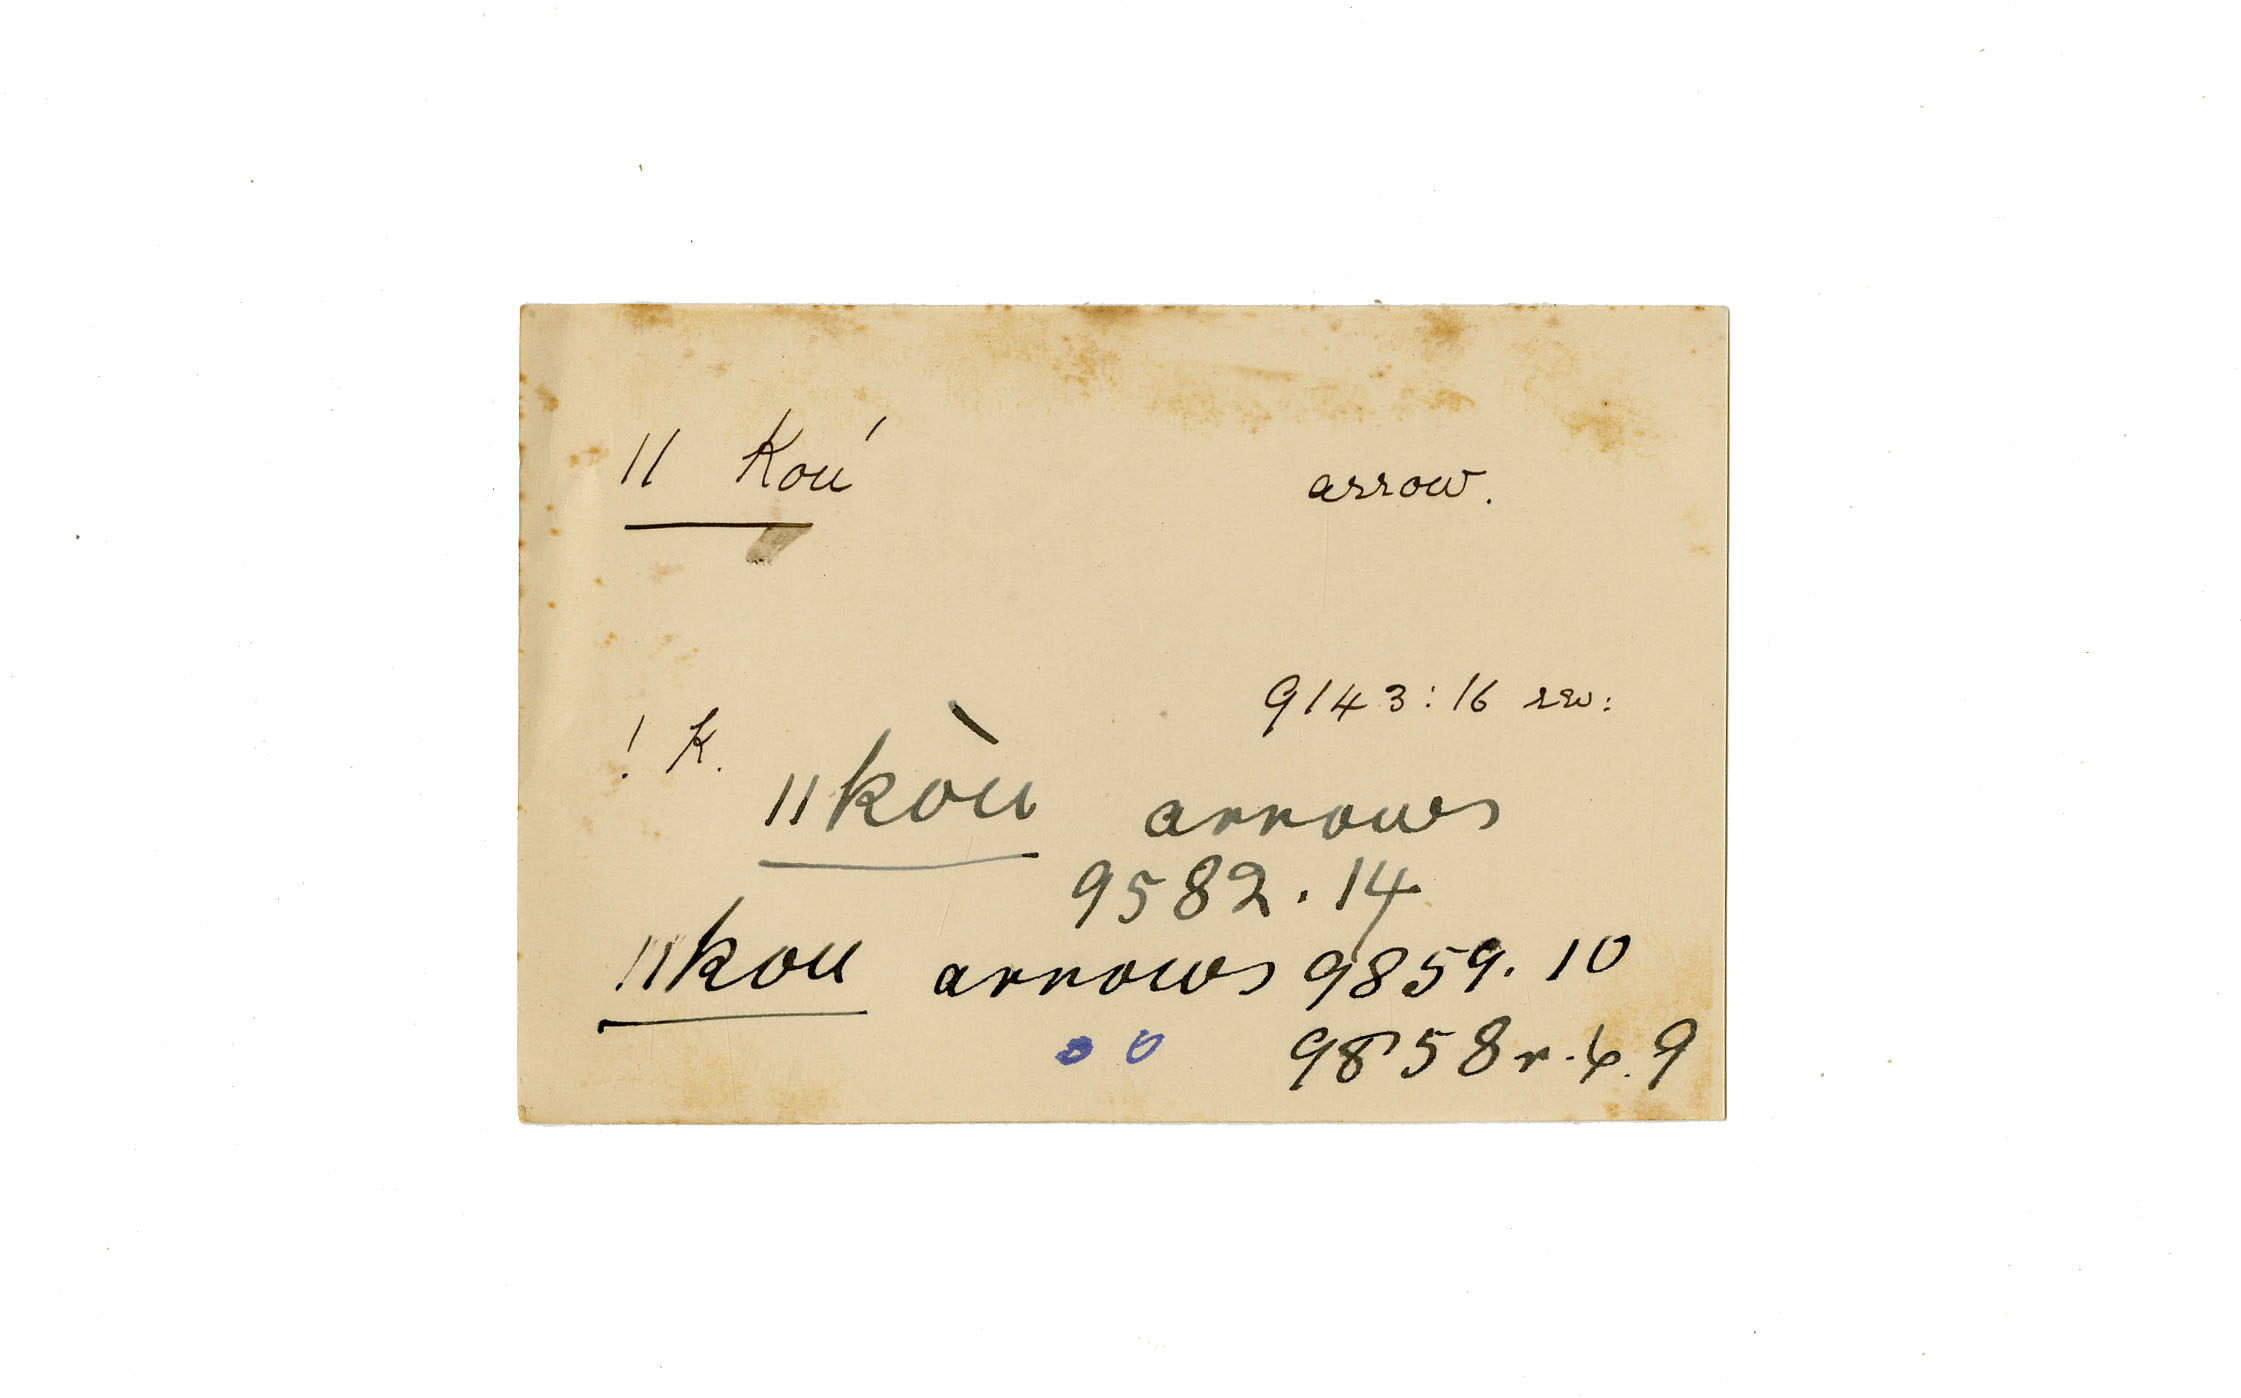 || Kou´ arrow.
9143:16 rev:
! K.
||kòu arrows
9582.14
||kou arrows 9859.10
9858r.4.9